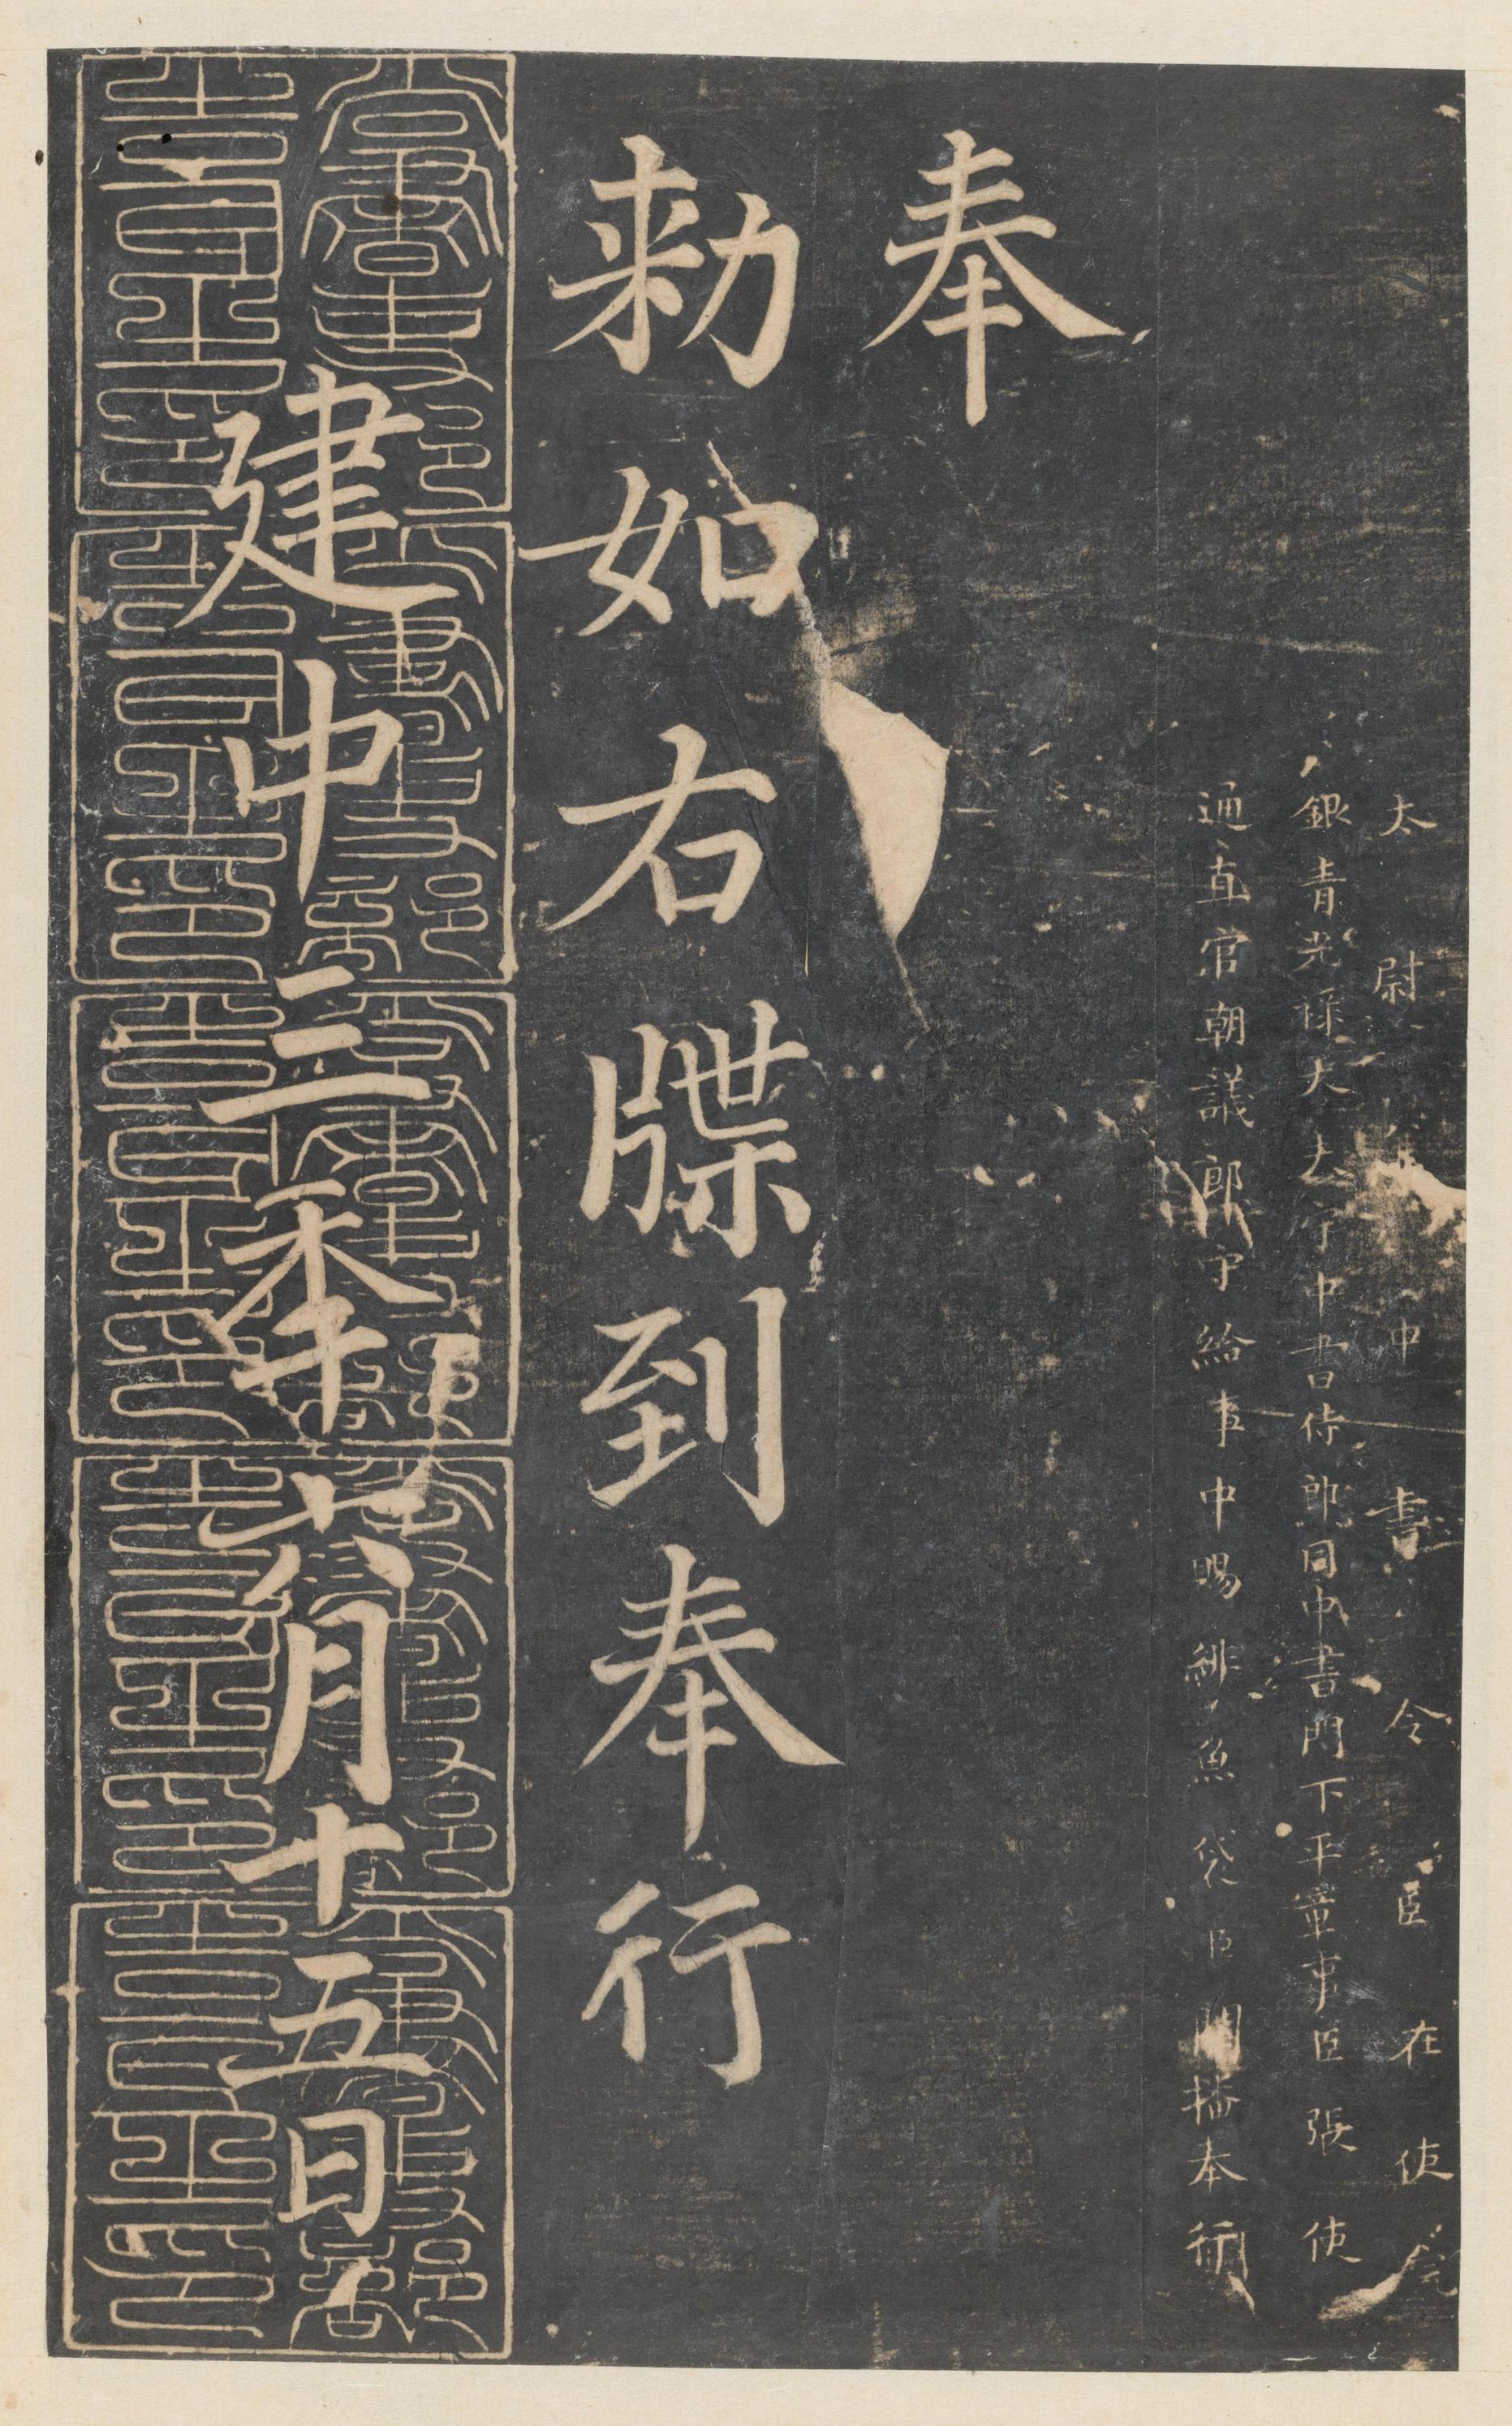 太尉中書令臣在使院
銀青光祿大夫守中書侍郎同中書門下平章事臣張使
通直官朝議郎守給事中賜緋魚袋臣關播奉行
奉
勅如右牒到奉行
建中三年六月十五日